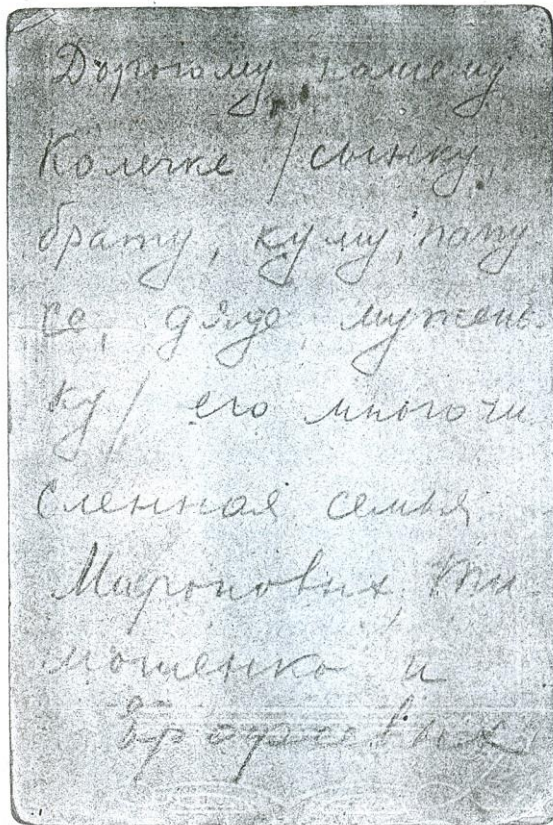 Дорогому нашему
Колечке / сынку,
брату, куму, папу
се, дяде, мужень-
ку / его многочи
сленная семья
Мироновых, Ти-
мошенко и